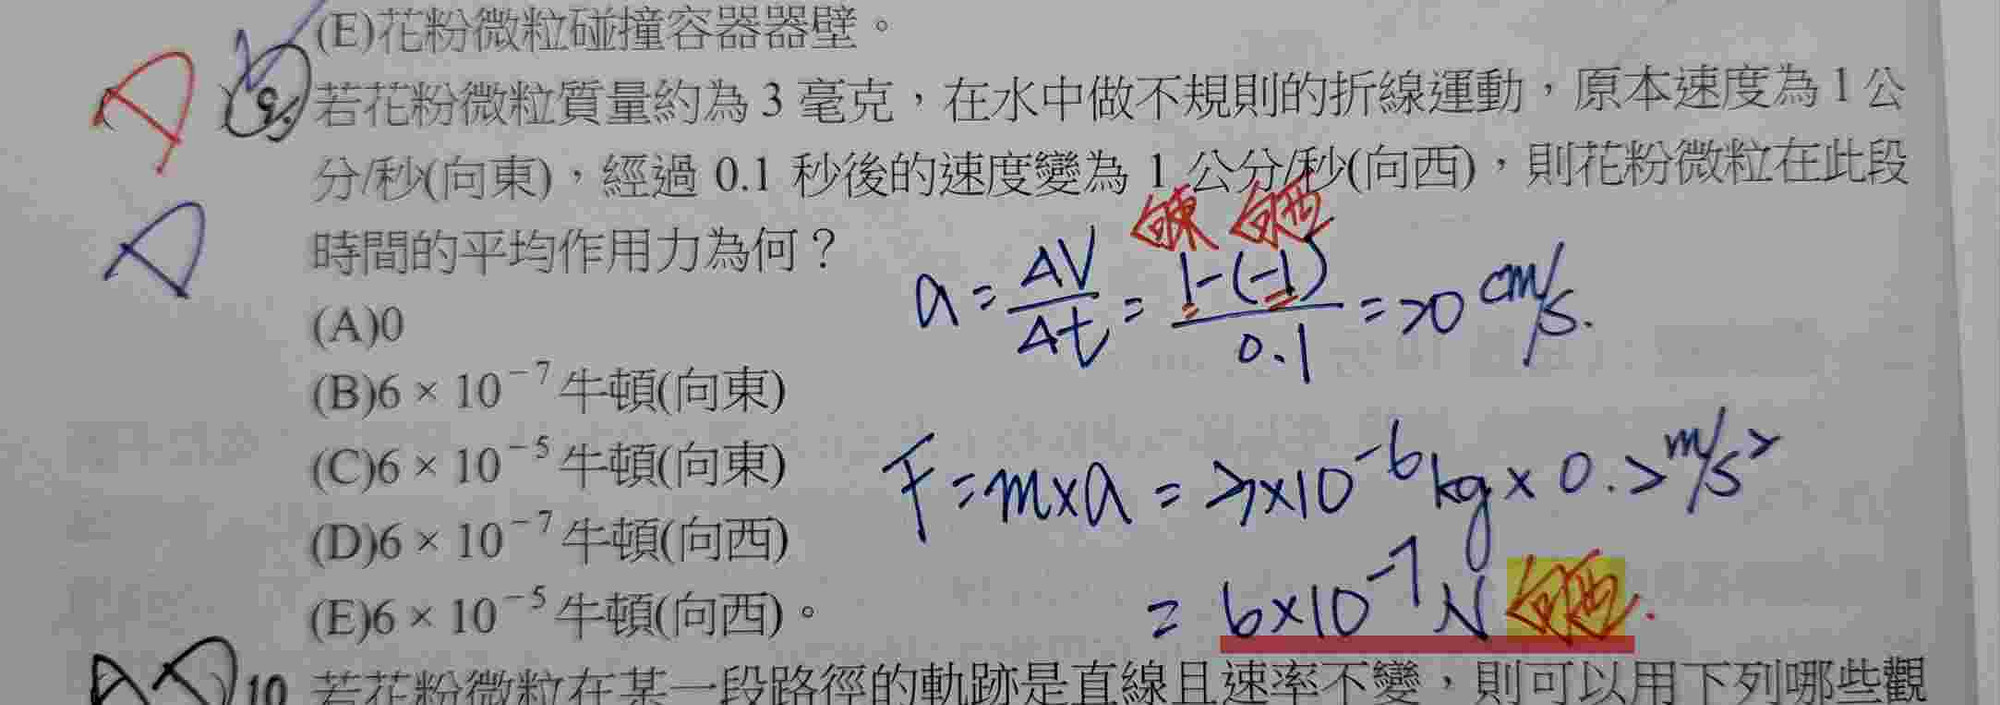 (E)花粉微粒碰撞容器器壁。
9.若花粉微粒質量約為 3 毫克,在水中做不規則的折線運動,原本速度為 1 公
分/秒(向東),經過 0.1 秒後的速度變為 1 公分/秒(向西),則花粉微粒在此段
時間的平均作用力為何?
向東 向西
(A)0
a = ΔV/Δt = 1-(-1)/0.1 = 20 cm/s.
(B)6 × 10⁻⁷ 牛頓(向東)
(C)6 × 10⁻⁵ 牛頓(向東)
F = m×a = 3×10⁻⁶ kg × 0.2 m/s²
(D)6 × 10⁻⁷ 牛頓(向西)
(E)6 × 10⁻⁵ 牛頓(向西)。
= 6×10⁻⁷ N 向西.
10 若花粉微粒在某一段路徑的軌跡是直線且速率不變,則可以用下列哪些觀